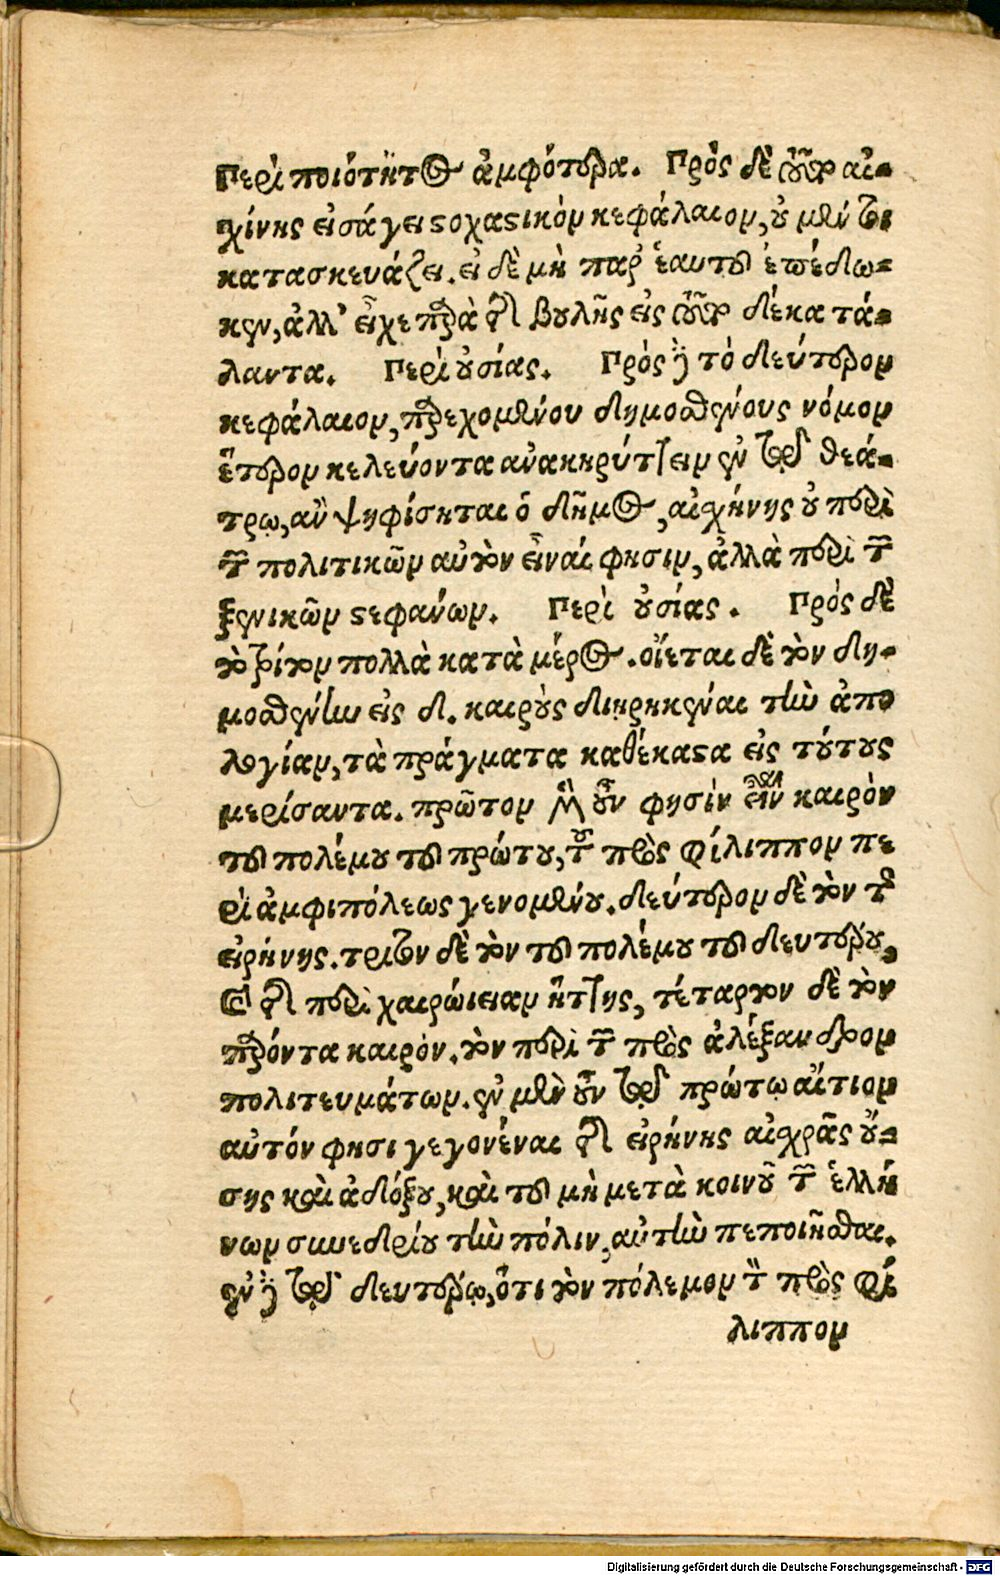 Περὶ ποιότητος ἀμφότερα. Πρὸς δὲ αἰ-
χίνης εἰσάγει στοχαστικὸν κεφάλαιον, οὐ μὲν
κατασκευάζει. εἰ δὲ μὴ παρ' ἑαυτοῦ ἐπέδω-
κεν, ἀλλ' εἶχε παρὰ τῆς βουλῆς εἰς δέκα τά-
λαντα. Περὶ οὐσίας. Πρὸς δὲ τὸ δεύτερον
κεφάλαιον, παρεχομένου δημοσθένους νόμον
ἕτερον κελεύοντα ἀνακηρύττειν ἐν τῷ θεά-
τρῳ, ἂν ψηφίσηται ὁ δῆμος, αἰσχήνης οὐ περὶ
τῶν πολιτικῶν αὐτὸν εἶναί φησιν, ἀλλὰ περὶ τῶν
ξενικῶν στεφάνων. Περὶ οὐσίας. Πρὸς δὲ
τὸ τρίτον πολλὰ κατὰ μέρος. οἴεται δὲ τὸν δη-
μοσθένην εἰς δ. καιροὺς διῃρηκέναι τὴν ἀπο
λογίαν, τὰ πράγματα καθέκαστα εἰς τούτους
μερίσαντα. πρῶτον μὲν οὖν φησὶν εἶναι καιρὸν
τοῦ πολέμου τοῦ πρώτου, τοῦ πρὸς φίλιππον πε
ρὶ ἀμφιπόλεως γενομένου. δεύτερον δὲ τὸν τῆς
εἰρήνης. τρίτον δὲ τὸν τοῦ πολέμου τοῦ δευτέρου,
καὶ τῆς περὶ χαιρώνειαν ἥττης, τέταρτον δὲ τὸν
παρόντα καιρόν. τὸν περὶ τῶν πρὸς ἀλέξανδρον
πολιτευμάτων. ἐν μὲν οὖν τῷ πρώτῳ αἴτιον
αὐτόν φησι γεγονέναι τῆς εἰρήνης αἰσχρᾶς οὔ-
σης καὶ ἀδόξου, καὶ τοῦ μὴ μετὰ κοινοῦ τῶν ἑλλή
νων συνεδρίου τὴν πόλιν, αὐτὴν πεποιῆσθαι.
ἐν δὲ τῷ δευτέρῳ, ὅτι τὸν πόλεμον τὸν πρὸς φί
λιππον
Digitalisierung gefördert durch die Deutsche Forschungsgemeinschaft - DFG